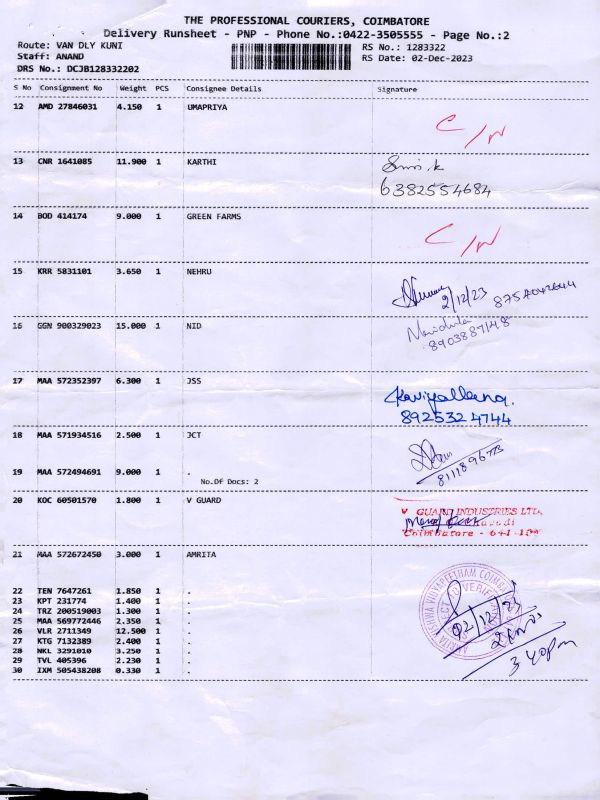 THE PROFESSIONAL COURIERS, COIMBATORE
Delivery Runsheet - PNP - Phone No.:0422-3505555 - Page No.:2
Route: VAN DLY KUNI RS No.: 1283322
Staff: ANAND RS Date: 02-Dec-2023
DRS No.: DCJB128332202
S No Consignment No Weight PCS Consignee Details Signature
12 AMD 27846031 4.150 1 UMAPRIYA
C/N
13 CNR 1641085 11.900 1 KARTHI
6382554684
14 BOD 414174 9.000 1 GREEN FARMS
C/N
15 KRR 5831101 3.650 1 NEHRU
2/12/23
16 GGN 900329023 15.000 1 NID
8903887148
17 MAA 572352397 6.300 1 JSS
8925324744
18 MAA 571934516 2.500 1 JCT
19 MAA 572494691 9.000 1 .
No.Of Docs: 2
20 KOC 60501570 1.800 1 V GUARD
V GUARD INDUSTRIES LTD.
Coimbatore - 641
21 MAA 572672450 3.000 1 AMRITA
22 TEN 7647261 1.850 1 .
23 KPT 231774 1.400 1 .
24 TRZ 200519003 1.300 1 .
25 MAA 569772446 2.350 1 .
26 VLR 2711349 12.500 1 .
27 KTG 7132389 2.400 1 .
28 NKL 3291010 3.250 1 .
29 TVL 405396 2.230 1 .
30 IXM 505438208 0.330 1 .
02/12/23
3 40pm